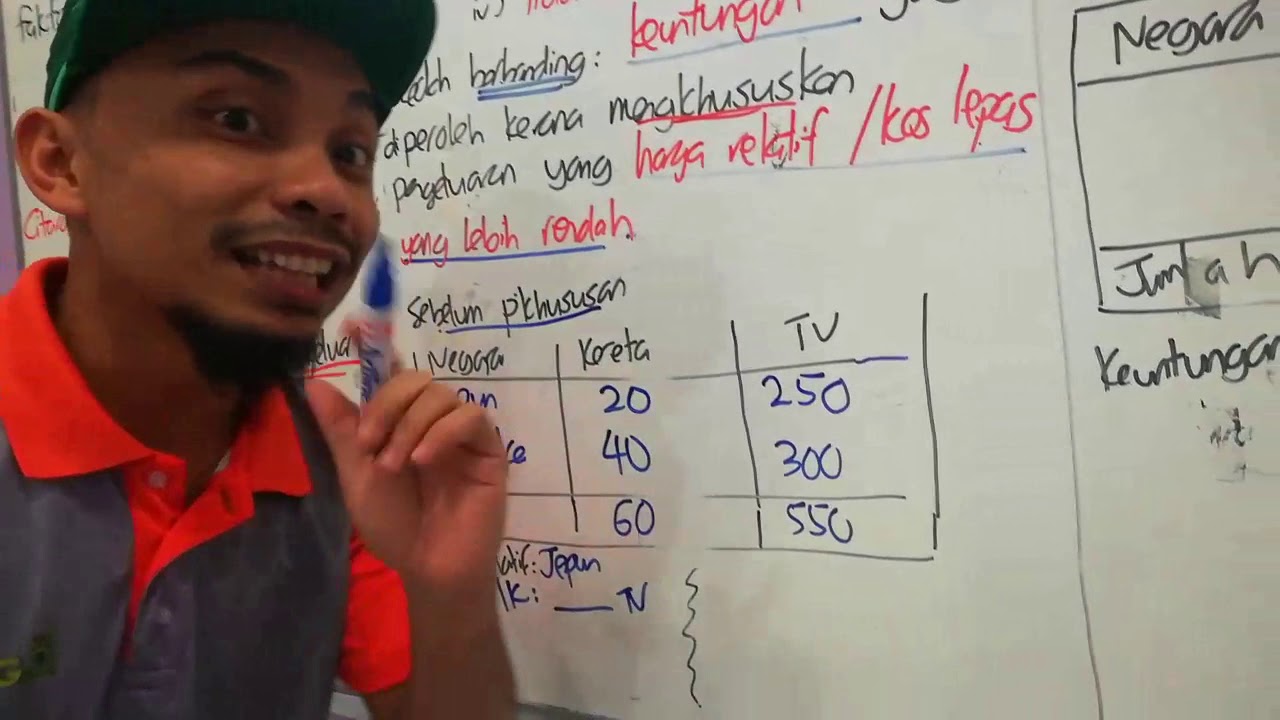 keuntungan
berbanding:
diperoleh kerana mengkhususkan
pengeluaran yang harga relatif / kos lepas
yang lebih rendah
Sebelum p'khususan
Negara Kereta TV
20 250
40 300
60 550
Jepun
1K: ___ TV
Negara
Jumlah
Keuntungan